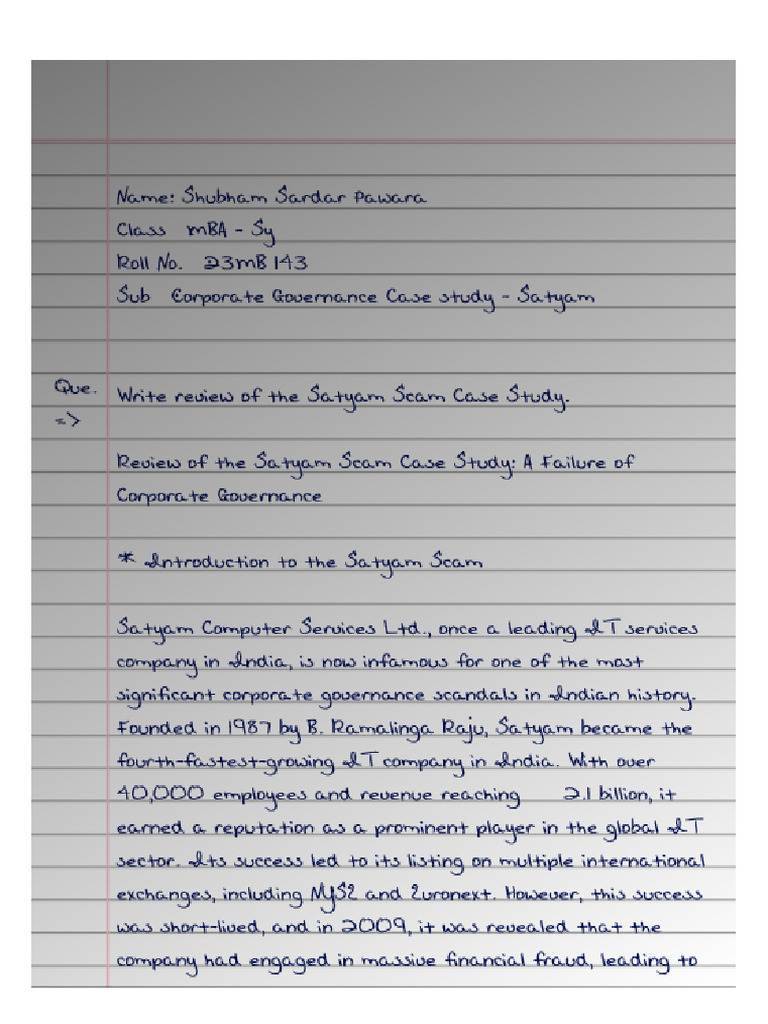 Name: Shubham Sardar Pawara
Class mBA - Sy
Roll No. 23mB143
Sub Corporate Governance Case study - Satyam
Que. Write review of the Satyam Scam Case Study.
=>
Review of the Satyam Scam Case Study: A Failure of
Corporate Governance
* Introduction to the Satyam Scam
Satyam Computer Services Ltd., once a leading IT services
company in India, is now infamous for one of the most
significant corporate governance scandals in Indian history.
Founded in 1987 by B. Ramalinga Raju, Satyam became the
fourth-fastest-growing IT company in India. With over
40,000 employees and revenue reaching 2.1 billion, it
earned a reputation as a prominent player in the global IT
sector. Its success led to its listing on multiple international
exchanges, including NYSE and Euronext. However, this success
was short-lived, and in 2009, it was revealed that the
company had engaged in massive financial fraud, leading to